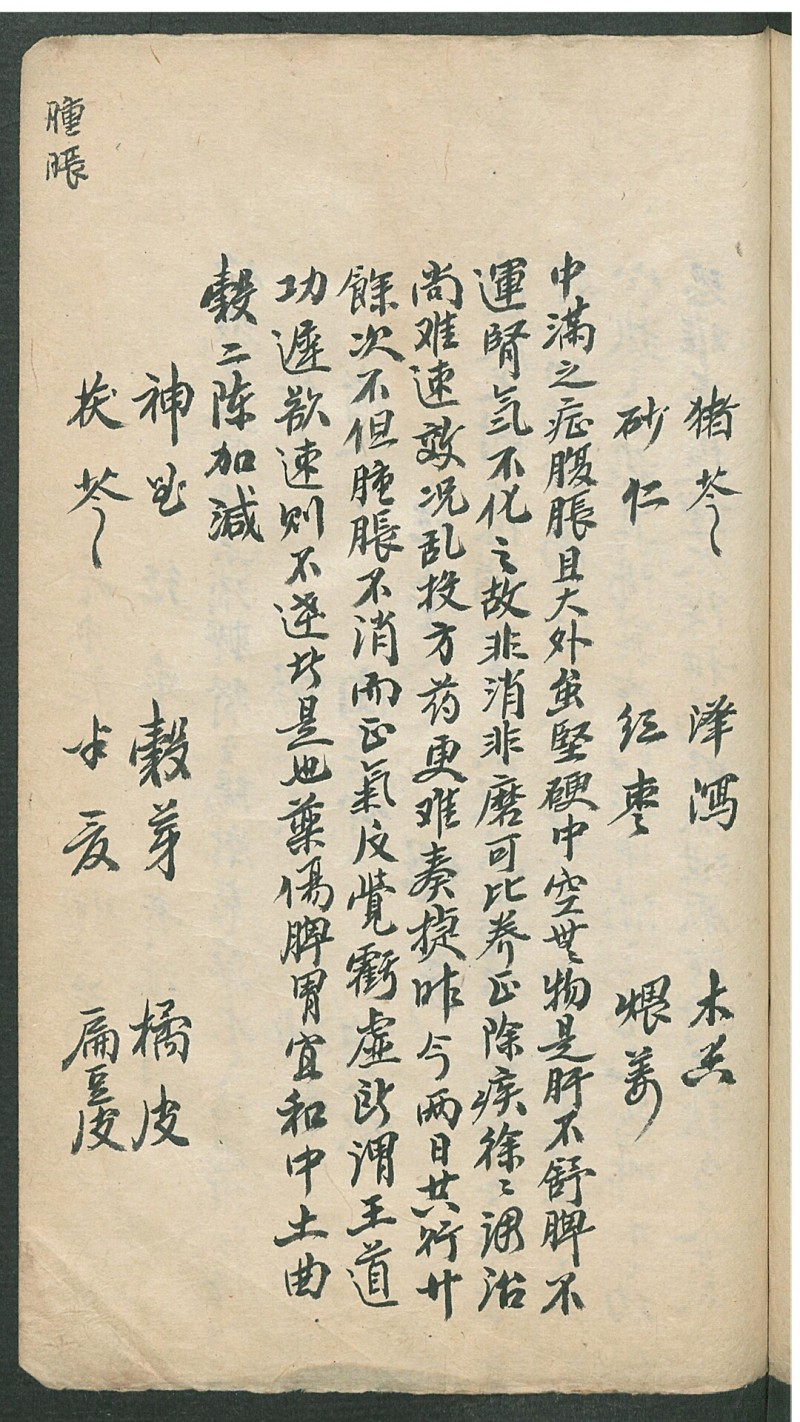 猪苓 泽泻 木香
砂仁 红枣 煨姜
中滿之症腹脹且大外虽堅硬中空無物是肝不舒脾不
運腎气不化之故非消非磨可比养正除疾徐〻调治
尚难速效况乱投方药更难奏捷昨今两日共行廿
餘次不但腫脹不消而正氣反覺虧虚所謂王道
功遲欲速则不达此是也藥傷脾胃宜和中土曲
穀二陈加減
神曲 穀芽 橘皮
茯苓 半夏 扁豆皮
腫脹